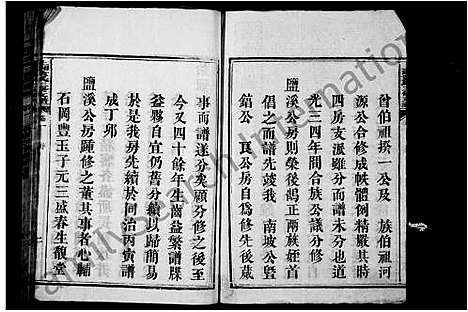 曾伯祖揆一公及 族伯祖河
源公合修成帙體例精嚴其時
四房支派雖分而譜未分也道
光三四年間合族公議分修
鹽溪公房則榮後鴻正兩族姪首
倡之而譜先竣我 南坡公暨
錦公 艮公房自為修先後蕆
事而譜遂分矣顧分修之後至
今又四十餘年生齒益繁譜牒
益夥自宜仍舊分續以歸簡易
於是我房先續於同治丙寅譜
成丁卯
鹽溪公房踵修之董其事者心輔
石岡豐玉子元三盛春生馥堂